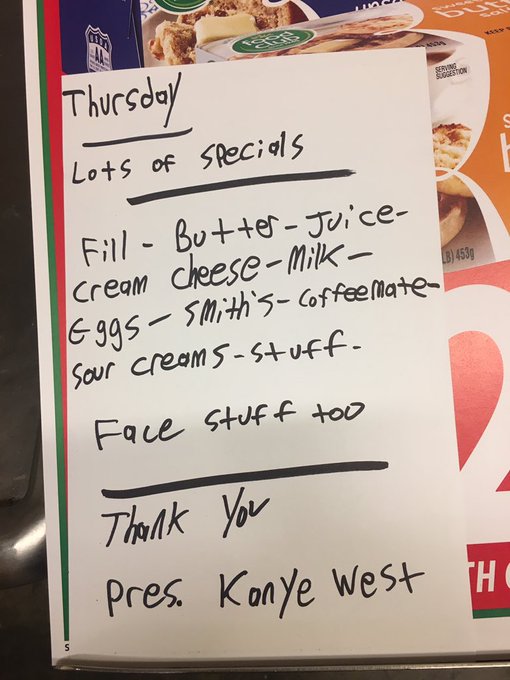 food club
SERVING
SUGGESTION
Thursday
Lots of specials
Fill - Butter - Juice -
cream cheese - Milk -
Eggs - Smith's - Coffeemate -
Sour creams - stuff -
Face stuff too
Thank You
pres. Kanye West
LB) 453g
2
TH
S